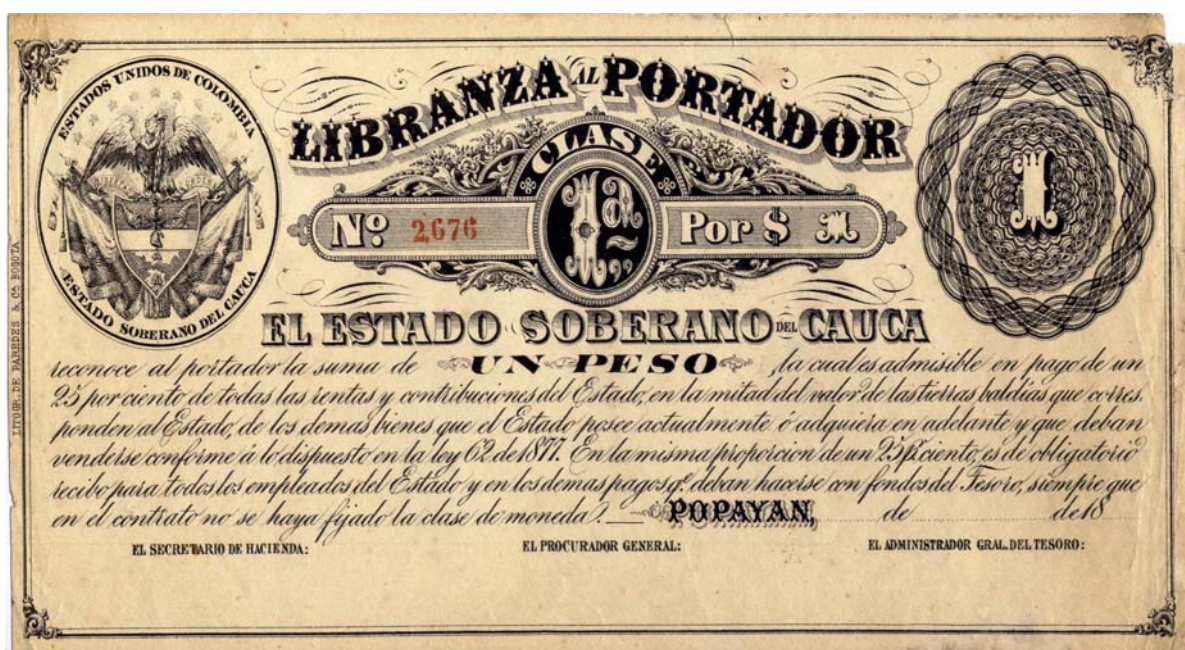 ESTADOS UNIDOS DE COLOMBIA
ESTADO SOBERANO DEL CAUCA
LIBRANZA AL PORTADOR
CLASE
Nº 2676 1ª Por $ 1
1
EL ESTADO SOBERANO DEL CAUCA
reconoce al portador la suma de UN PESO, la cual es admisible en pago de un
25 por ciento de todas las rentas y contribuciones del Estado, en la mitad del valor de las tierras baldias que corres-
ponden al Estado, de los demas bienes que el Estado posee actualmente ó adquiera en adelante y que deban
venderse conforme á lo dispuesto en la ley 62 de 1877. En la misma proporcion de un 25 p. ciento, es de obligatorio
recibo para todos los empleados del Estado y en los demas pagos q. deban hacerse con fondos del Tesoro, siempre que
en el contrato no se haya fijado la clase de moneda. POPAYAN, de de 18
EL SECRETARIO DE HACIENDA: EL PROCURADOR GENERAL: EL ADMINISTRADOR GRAL. DEL TESORO:
LITOGR. DE PAREDES & Cª BOGOTA.